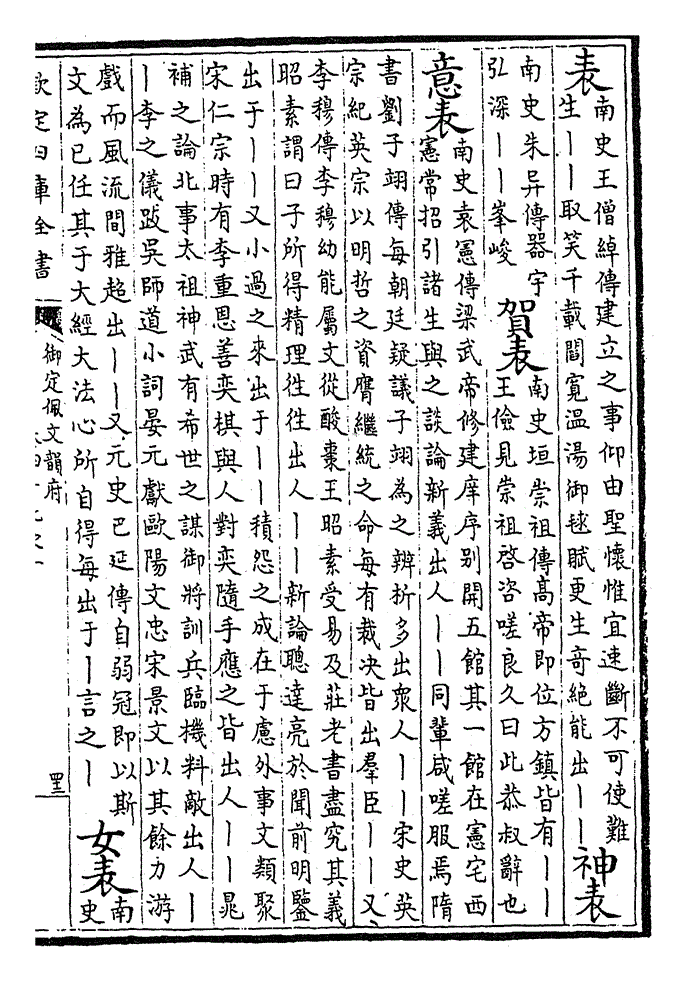 表
南史王僧綽傳建立之事仰由聖懷惟宜速斷不可使難
生丨丨取笑千載閻寬溫湯御毬賦更生奇絕能出丨丨
神表
南史朱异傳器宇
弘深丨丨峯峻
賀表
南史垣崇祖傳髙帝即位方鎮皆有丨丨
王儉見崇祖啓咨嗟良久曰此恭叔辭也
意表
南史袁憲傳梁武帝修建庠序别開五館其一館在憲宅西
憲常招引諸生與之談論新義出人丨丨同輩咸嗟服焉隋
書劉子翊傳每朝廷疑議子翊為之辨析多出衆人丨丨宋史英
宗紀英宗以明哲之資膺繼統之命每有裁決皆出羣臣丨丨又
李穆傳李穆幼能屬文從酸棗王昭素受易及莊老書盡究其義
昭素謂曰子所得精理徃徃出人丨丨新論聰達亮於聞前明鑒
出于丨丨又小過之來出于丨丨積怨之成在于慮外事文類聚
宋仁宗時有李重恩善奕棋與人對奕隨手應之皆出人丨丨晁
補之論北事太祖神武有希世之謀御將訓兵臨機料敵出人丨
丨李之儀跋吳師道小詞晏元獻歐陽文忠宋景文以其餘力游
戲而風流閒雅超出丨丨又元史巴延傳自弱冠即以斯
文為已任其于大經大法心所自得每出于丨言之丨
女表
南
史
欽定四庫全書
御定佩文韻府
罜